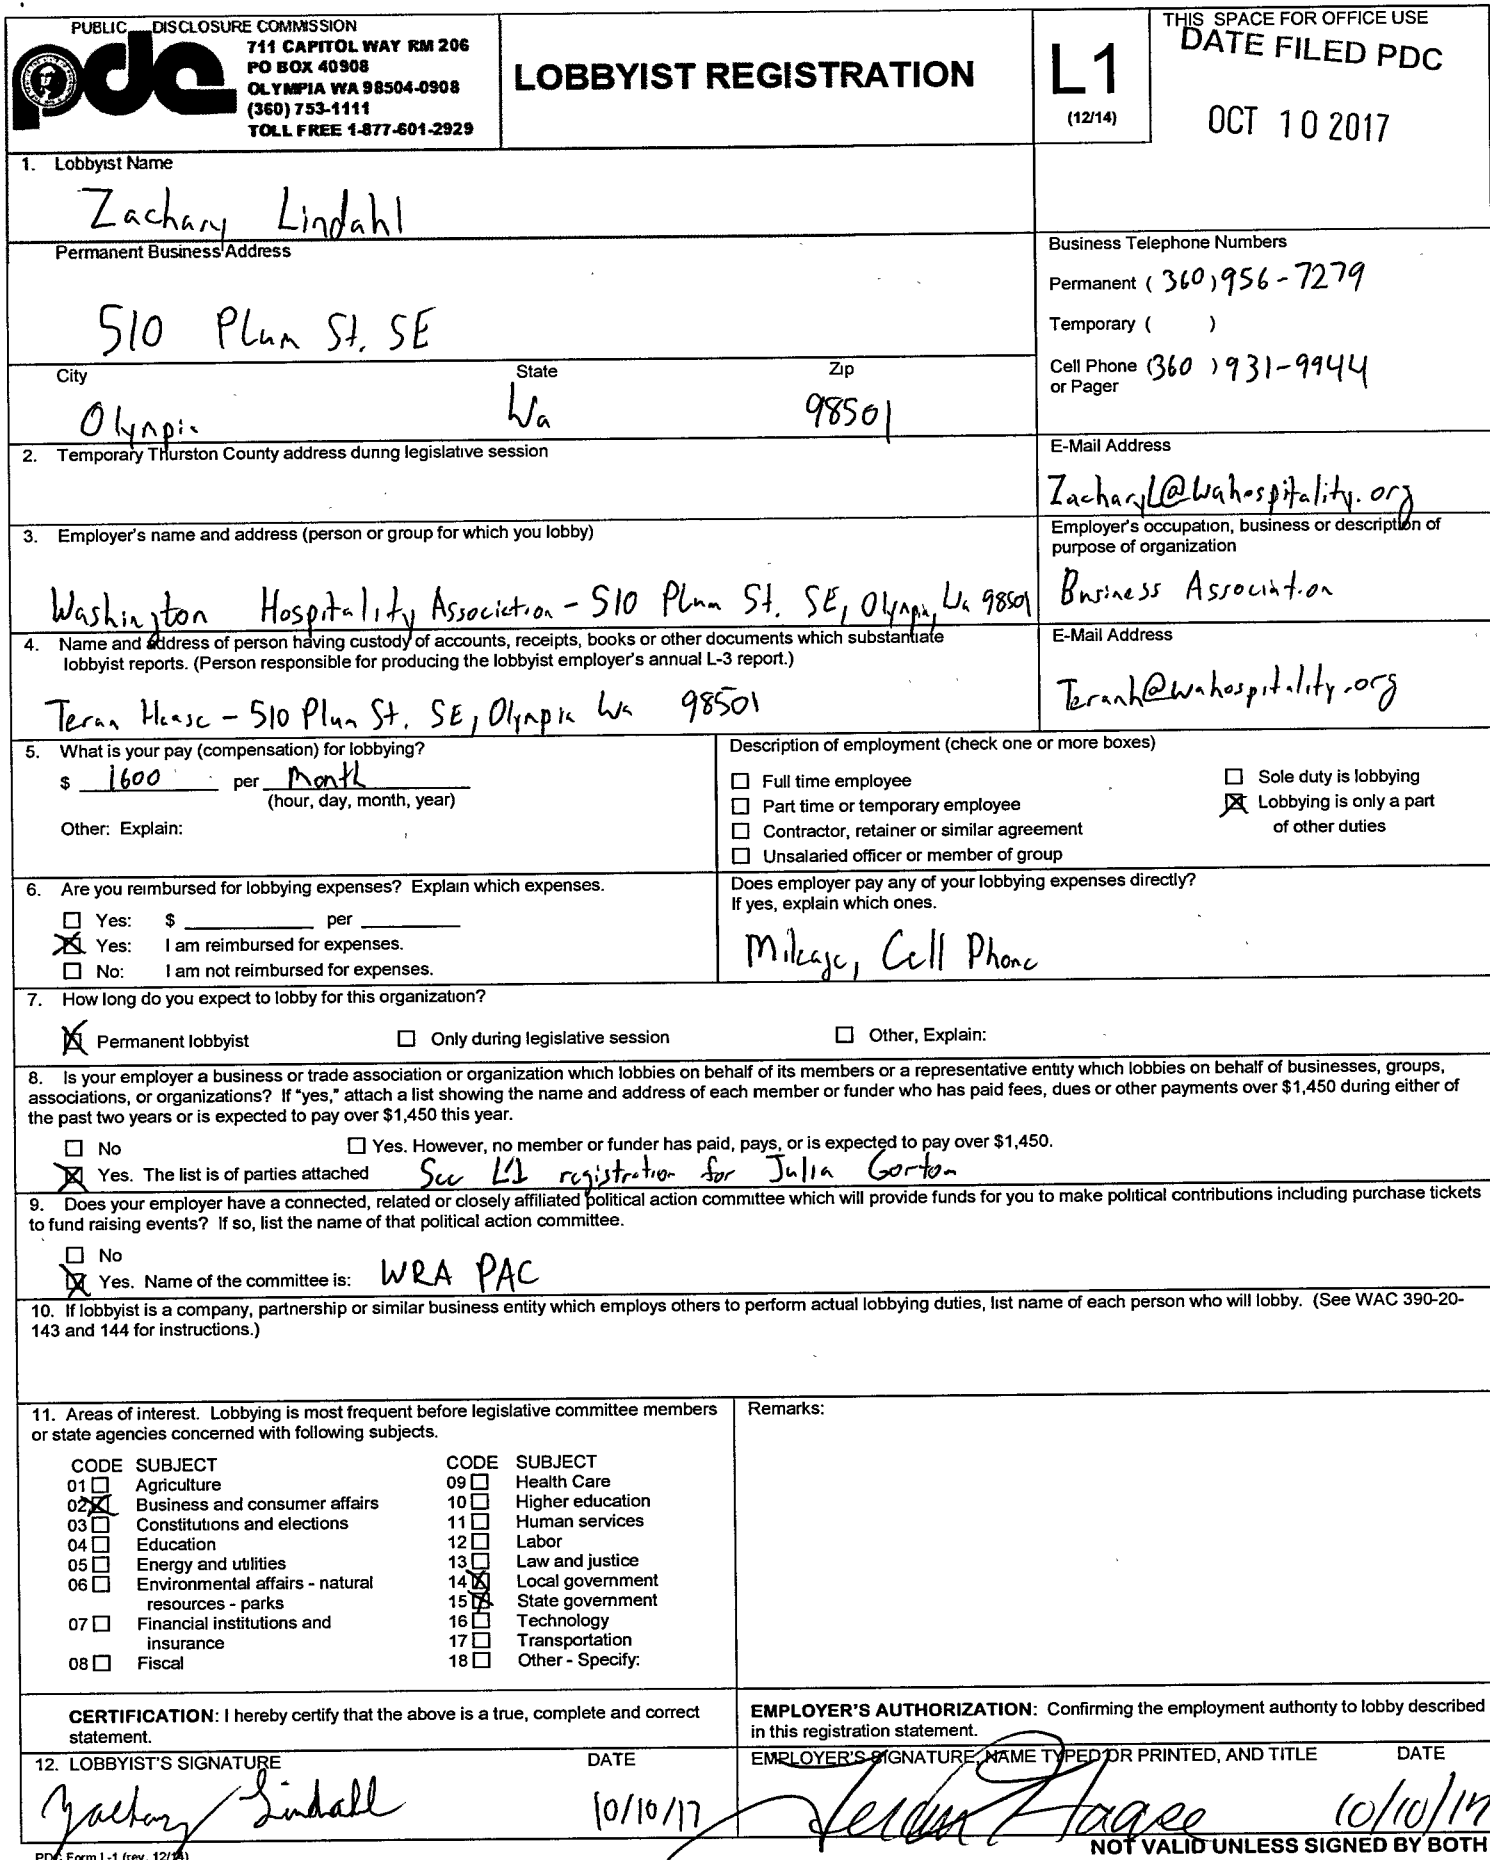 PUBLIC DISCLOSURE COMMISSION
pdc
711 CAPITOL WAY RM 206
PO BOX 40908
OLYMPIA WA 98504-0908
(360) 753-1111
TOLL FREE 1-877-601-2929
LOBBYIST REGISTRATION
L1
(12/14)
THIS SPACE FOR OFFICE USE
DATE FILED PDC
OCT 10 2017
1. Lobbyist Name
Zachary Lindahl
Permanent Business Address
510 Plum St. SE
Business Telephone Numbers
Permanent (360) 956-7279
Temporary ( )
Cell Phone (360) 931-9944
or Pager
City State Zip
Olympia Wa 98501
2. Temporary Thurston County address during legislative session
E-Mail Address
ZacharyL@wahospitality.org
3. Employer's name and address (person or group for which you lobby)
Washington Hospitality Association - 510 Plum St. SE, Olympia, Wa 98501
Employer's occupation, business or description of
purpose of organization
Business Association
4. Name and address of person having custody of accounts, receipts, books or other documents which substantiate
lobbyist reports. (Person responsible for producing the lobbyist employer's annual L-3 report.)
Teran Haase - 510 Plum St. SE, Olympia Wa 98501
E-Mail Address
Teranh@wahospitality.org
5. What is your pay (compensation) for lobbying?
$ 1600 per Month
(hour, day, month, year)
Other: Explain:
Description of employment (check one or more boxes)
Full time employee
Part time or temporary employee
Contractor, retainer or similar agreement
Unsalaried officer or member of group
Sole duty is lobbying
Lobbying is only a part
of other duties
6. Are you reimbursed for lobbying expenses? Explain which expenses.
Yes: $ per
Yes: I am reimbursed for expenses.
No: I am not reimbursed for expenses.
Does employer pay any of your lobbying expenses directly?
If yes, explain which ones.
Mileage, Cell Phone
7. How long do you expect to lobby for this organization?
Permanent lobbyist Only during legislative session Other, Explain:
8. Is your employer a business or trade association or organization which lobbies on behalf of its members or a representative entity which lobbies on behalf of businesses, groups,
associations, or organizations? If "yes," attach a list showing the name and address of each member or funder who has paid fees, dues or other payments over $1,450 during either of
the past two years or is expected to pay over $1,450 this year.
No Yes. However, no member or funder has paid, pays, or is expected to pay over $1,450.
Yes. The list is of parties attached See L1 registration for Julia Gorton
9. Does your employer have a connected, related or closely affiliated political action committee which will provide funds for you to make political contributions including purchase tickets
to fund raising events? If so, list the name of that political action committee.
No
Yes. Name of the committee is: WRA PAC
10. If lobbyist is a company, partnership or similar business entity which employs others to perform actual lobbying duties, list name of each person who will lobby. (See WAC 390-20-
143 and 144 for instructions.)
11. Areas of interest. Lobbying is most frequent before legislative committee members
or state agencies concerned with following subjects.
CODE SUBJECT
01 Agriculture
02 Business and consumer affairs
03 Constitutions and elections
04 Education
05 Energy and utilities
06 Environmental affairs - natural
resources - parks
07 Financial institutions and
insurance
08 Fiscal
CODE SUBJECT
09 Health Care
10 Higher education
11 Human services
12 Labor
13 Law and justice
14 Local government
15 State government
16 Technology
17 Transportation
18 Other - Specify:
Remarks:
CERTIFICATION: I hereby certify that the above is a true, complete and correct
statement.
EMPLOYER'S AUTHORIZATION: Confirming the employment authority to lobby described
in this registration statement.
12. LOBBYIST'S SIGNATURE DATE
Zachary Lindahl 10/10/17
EMPLOYER'S SIGNATURE, NAME TYPED OR PRINTED, AND TITLE DATE
Teran Haase 10/10/17
NOT VALID UNLESS SIGNED BY BOTH
PDC Form L-1 (rev. 12/14)